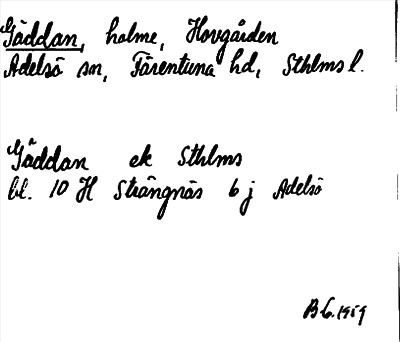 Gäddan, holme, Hovgården
Adelsö sn, Färentuna hd, Sthlms l.
Gäddan ek Sthlms
bl. 10 H Strängnäs 6 j Adelsö
B G. 1959